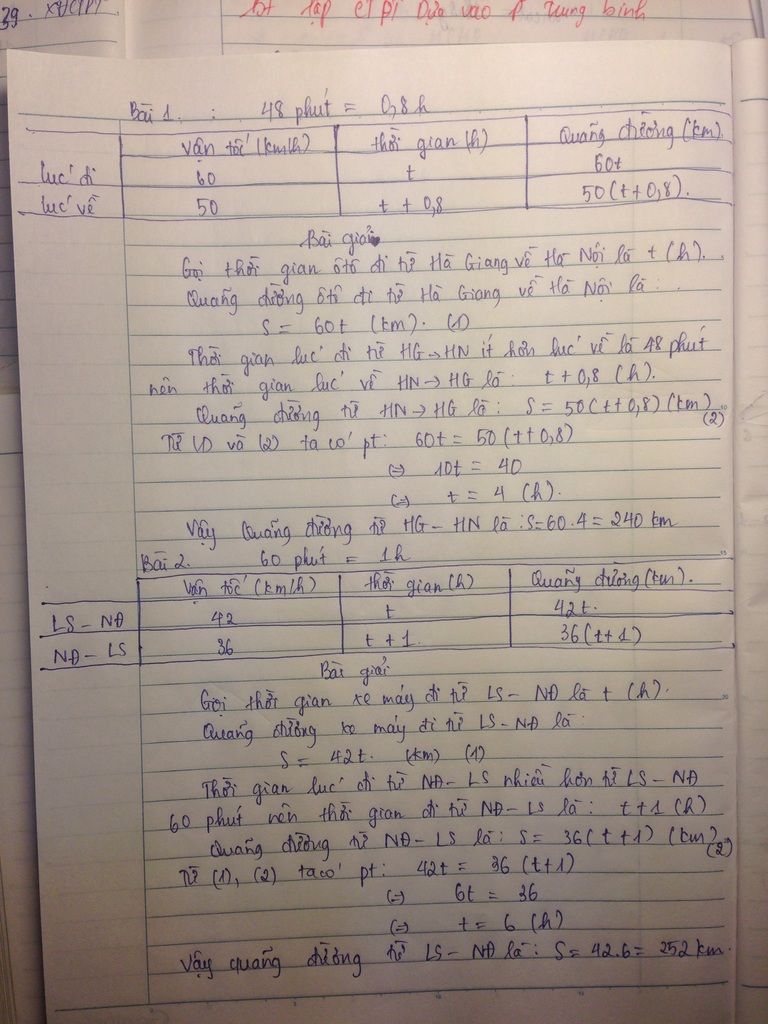 39. XĐCTPT
bt lập CTPT Dựa vào p trung bình
Bài 1. : 48 phút = 0,8h
vận tốc (km/h) thời gian (h) Quãng đường (km).
lúc đi 60 t 60t
lúc về 50 t + 0,8 50(t+0,8).
Bài giải
Gọi thời gian ôtô đi từ Hà Giang về Hà Nội là t (h).
Quãng đường ôtô đi từ Hà Giang về Hà Nội là:
S = 60t (km). (1)
Thời gian lúc đi từ HG→HN ít hơn lúc về là 48 phút
nên thời gian lúc về HN→HG là: t+0,8 (h).
Quãng đường từ HN→HG là: S = 50(t+0,8) (km) (2)
Từ (1) và (2) ta có pt: 60t = 50(t+0,8)
(=) 10t = 40
(=) t = 4 (h).
Vậy Quãng đường từ HG - HN là: S=60.4=240 km
Bài 2. 60 phút = 1h
vận tốc (km/h) thời gian (h) Quãng đường (km).
LS - NĐ 42 t 42t.
NĐ - LS 36 t + 1. 36(t+1)
Bài giải
Gọi thời gian xe máy đi từ LS - NĐ là t (h).
Quãng đường xe máy đi từ LS - NĐ là:
S = 42t. (km) (1)
Thời gian lúc đi từ NĐ - LS nhiều hơn từ LS - NĐ
60 phút nên thời gian đi từ NĐ - LS là: t+1 (h)
Quãng đường từ NĐ - LS là: S = 36(t+1) (km) (2)
Từ (1), (2) ta có pt: 42t = 36(t+1)
(=) 6t = 36
(=) t = 6 (h)
Vậy quãng đường từ LS - NĐ là: S = 42.6 = 252 km.